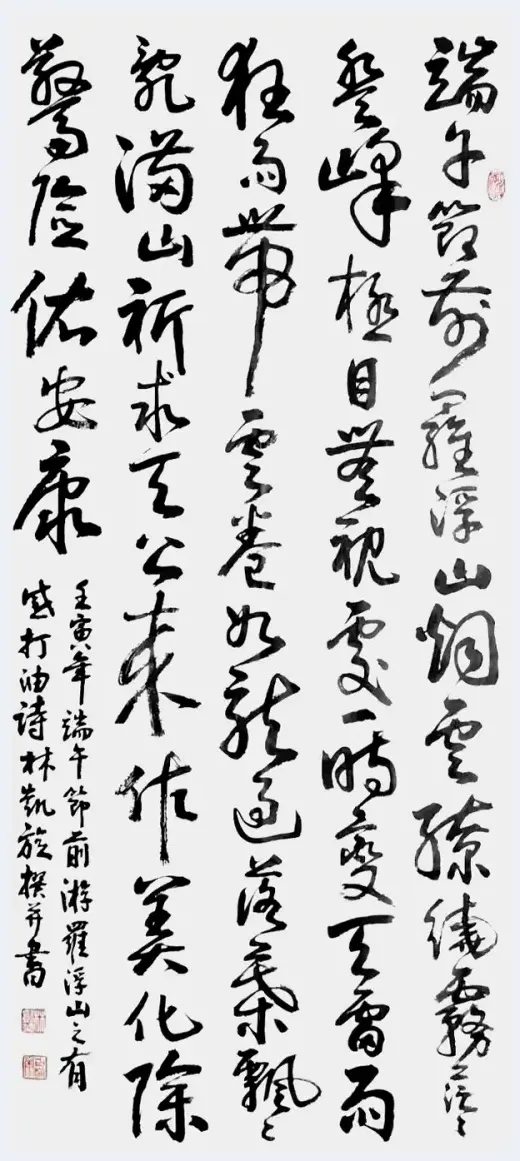 端午節前羅浮山烟雲繚繞霧茫〻
登峰極目無視處一時變天雷雨
狂雨帶雲卷如龍過落葉飄〻
亂滿山祈求天公來作美化除
驚險佑安康
壬寅年端午節前游羅浮山之有
感打油詩林凱旋撰并書